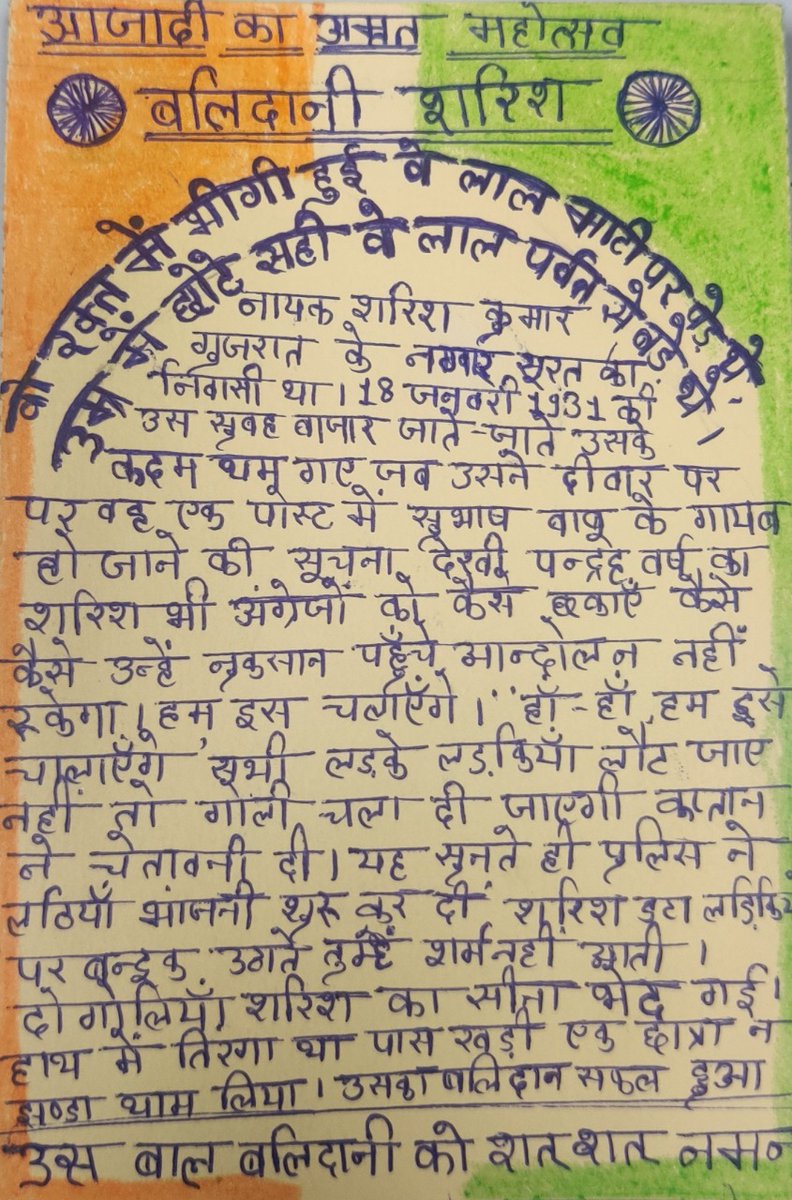 आजादी का अमृत महोत्सव
बलिदानी शरिश
वो रक्त में भीगी हुई वे लाल माटी पर पड़े थे -
उम्र में छोटे सही वे लाल पर्वत से बड़े थे।
नायक शरिश कुमार
गुजरात के नगवार सूरत का
निवासी था। 18 जनवरी 1931 की
उस सुबह बाजार जाते-जाते उसके
कदम थम गए जब उसने दीवार पर
पर वह एक पोस्ट में सुभाष बाबु के गायब
हो जाने की सूचना देखी पन्द्रह वर्ष का
शरिश भी अंग्रेजों को कैसे छकाएँ कैसे
कैसे उन्हें नुकसान पहुँचे आन्दोलन नहीं
रुकेगा। हम इस चलाएँगे। "हाँ-हाँ हम इसे
चालाएँगे सभी लड़के लड़कियाँ लौट जाए
नहीं तो गोली चला दी जाएगी कप्तान
ने चेतावनी दी। यह सुनते ही पुलिस ने
लठियाँ भांजनी शुरू कर दी शरिश डटा लड़िकिय
पर बन्दूक उगते तुम्हें शर्म नहीं आती ।
दो गोलियाँ शरिश का सीना भेद गई।
हाथ में तिरगा था पास खड़ी एक छात्रा न
झण्डा थाम लिया। उसका बलिदान सफल हुआ
उस बाल बलिदानी को शत शत नमन